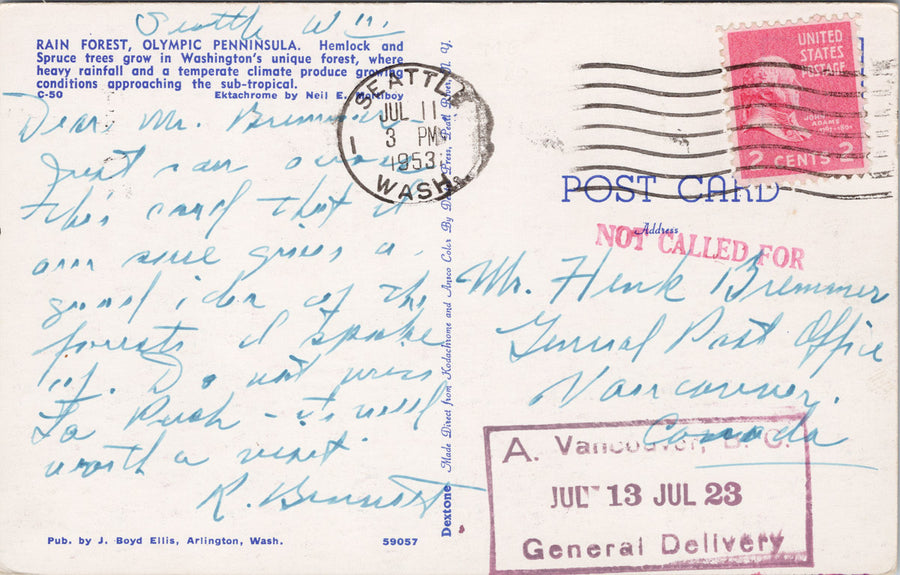 Seattle Wn.
RAIN FOREST, OLYMPIC PENNINSULA. Hemlock and
Spruce trees grow in Washington's unique forest, where
heavy rainfall and a temperate climate produce growing
conditions approaching the sub-tropical.
C-50 Ektachrome by Neil E. Mortiboy
Dear Mr. Bremmer -
Just ran across
this card that I
am sure gives a
good idea of the
forests I spoke
of. Do not miss
La Push - its well
worth a visit.
R. Bennett
Pub. by J. Boyd Ellis, Arlington, Wash. 59057
Dextone Made Direct from Kodachrome and Ansco Color By Dexter Press, Pearl River, N. Y.
SEATTLE
JUL 11
3 PM
1953
1
WASH.
UNITED
STATES
POSTAGE
JOHN
ADAMS
2 CENTS 2
POST CARD
Address
NOT CALLED FOR
Mr. Henk Bremmer
General Post Office
Vancouver.
Canada
A. Vancouver, B. C.
JUL 13 JUL 23
General Delivery